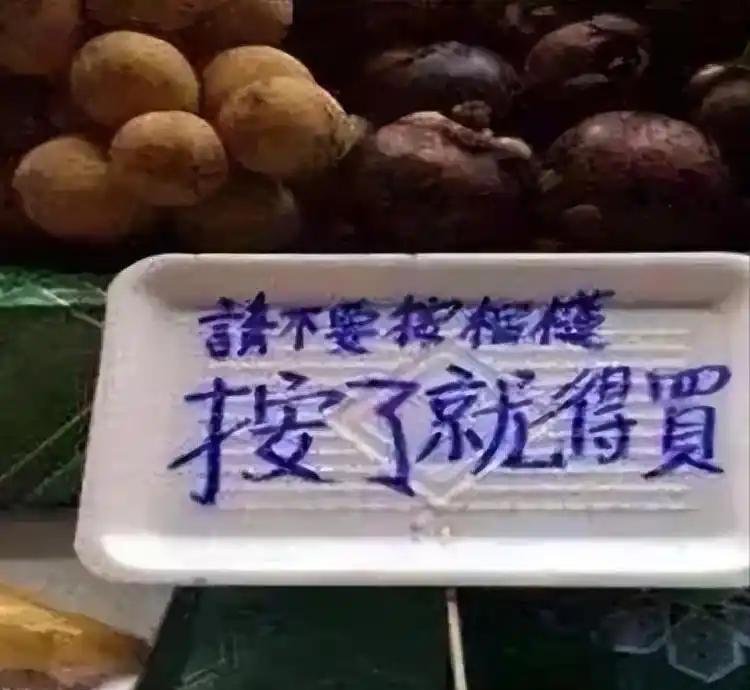 請不要按
按了就得買